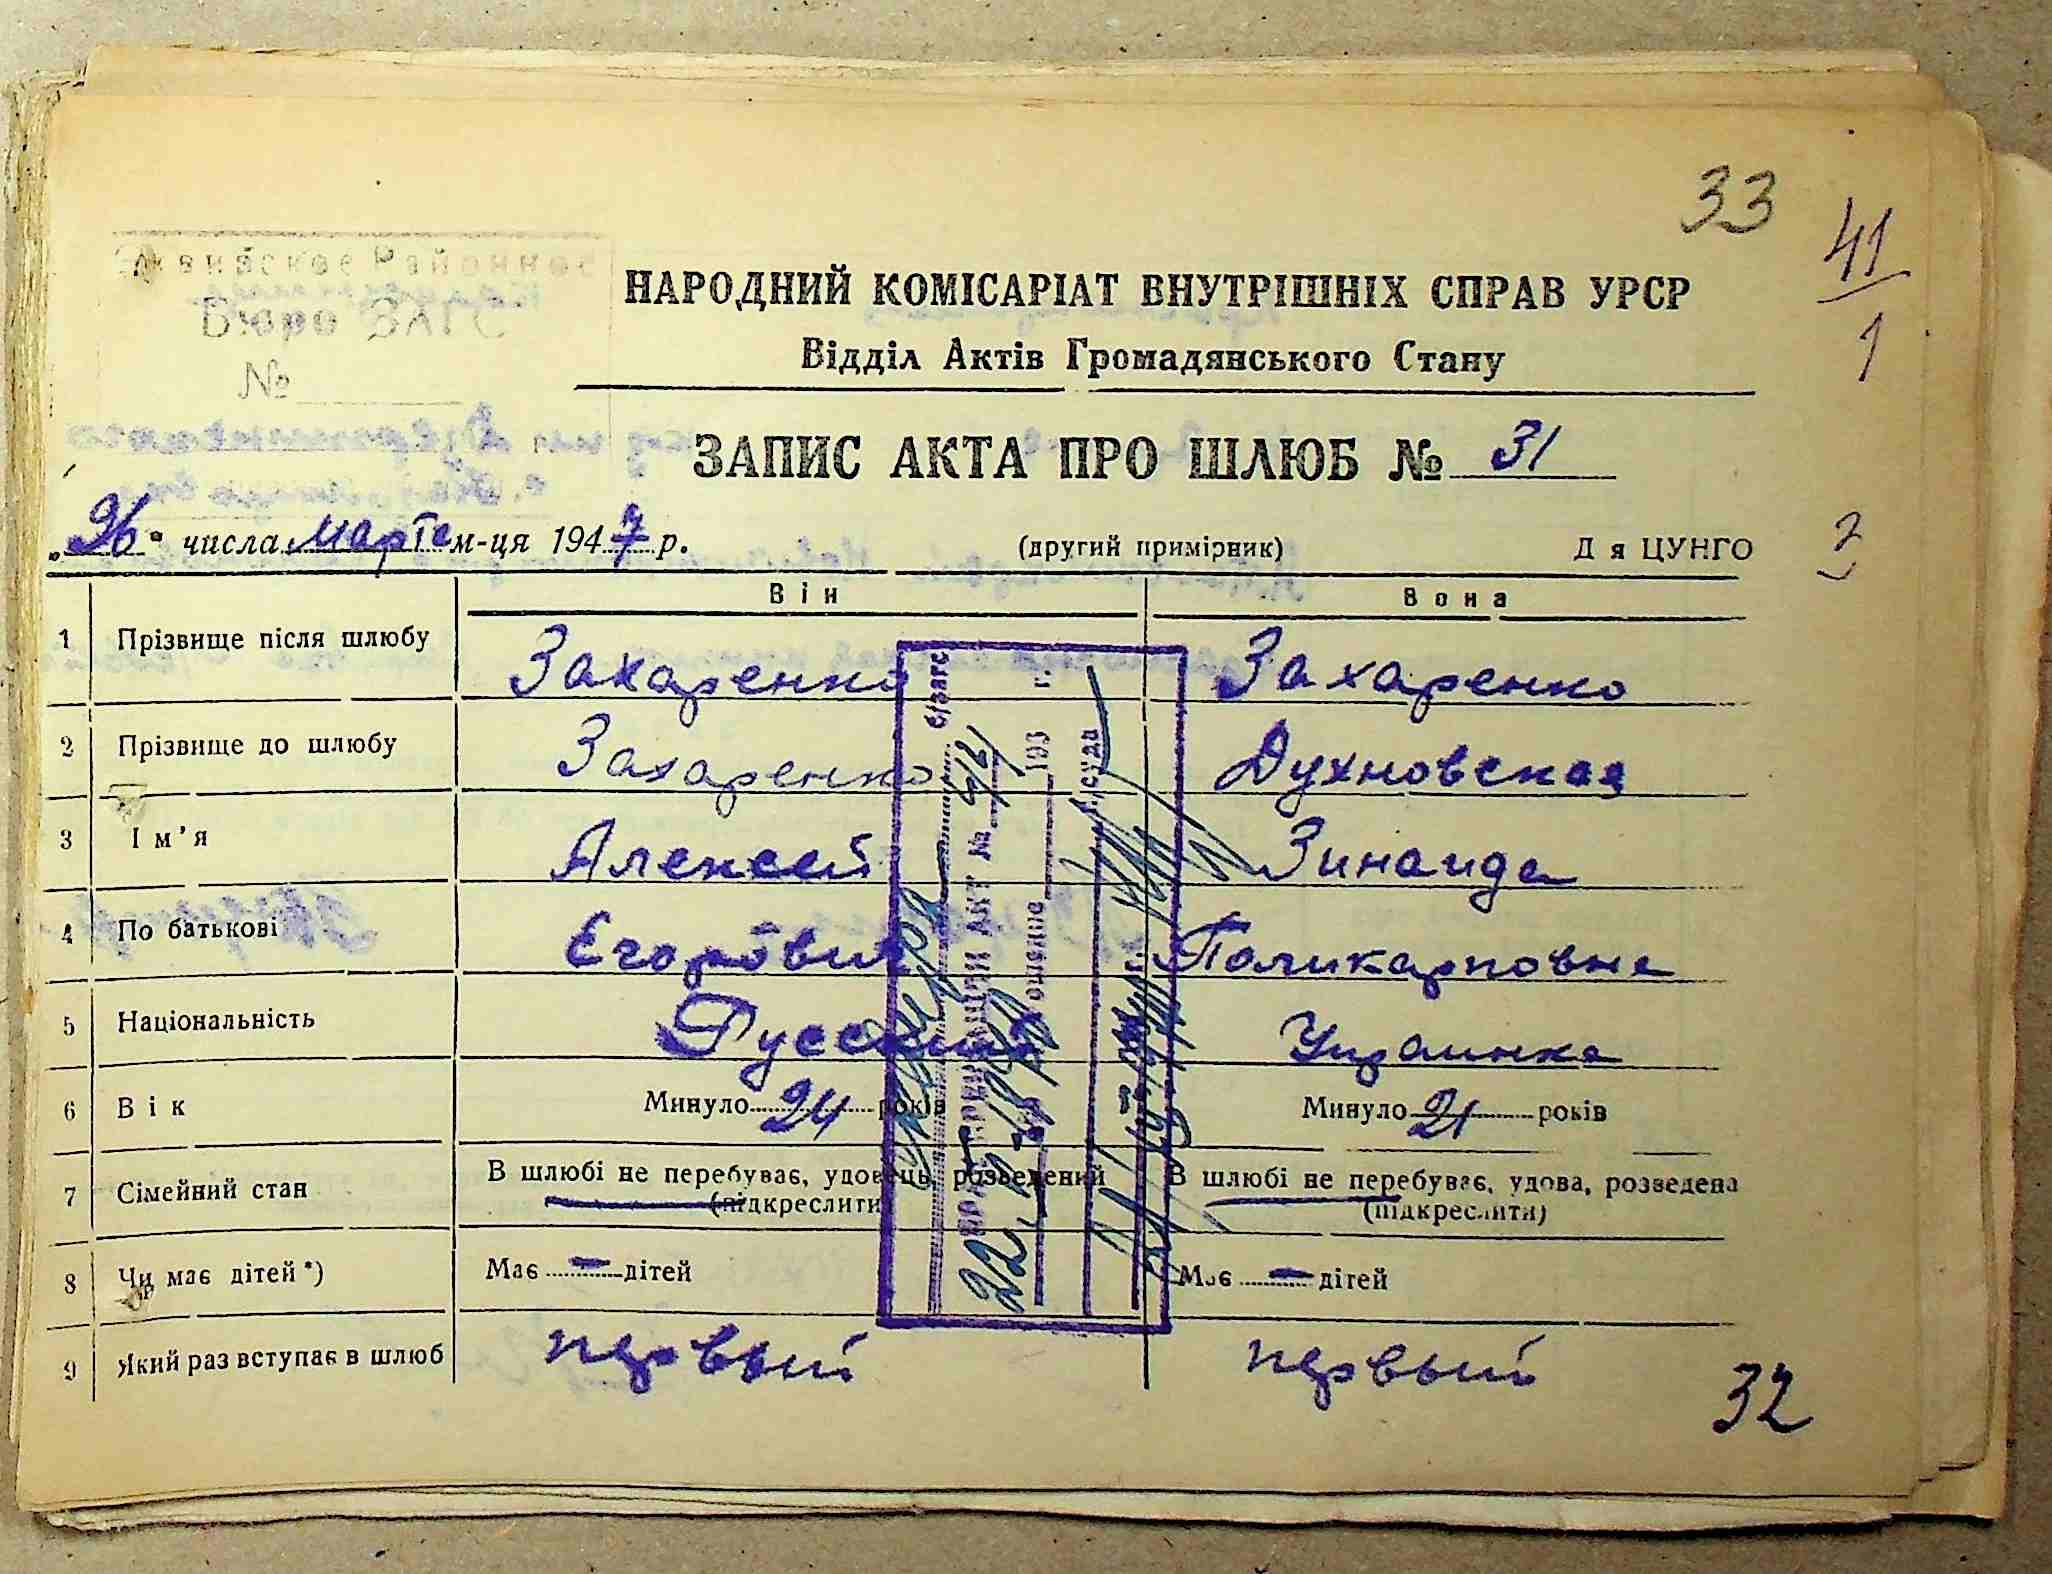 33
41
1
Бюро ЗАГС
№
НАРОДНИЙ КОМІСАРІАТ ВНУТРІШНІХ СПРАВ УРСР
Відділ Актів Громадянського Стану
ЗАПИС АКТА ПРО ШЛЮБ № 31
„26" числа марта м-ця 1947 р. (другий примірник) Д я ЦУНГО
2
Він Вона
1 Прізвище після шлюбу Захаренко Захаренко
2 Прізвище до шлюбу Захаренко Духновская
3 Ім'я Алексей Зинаида
4 По батькові Егорович Поликарповна
5 Національність Русский Украинка
6 Вік Минуло 24 років Минуло 21 років
7 Сімейний стан В шлюбі не перебуває, удовець, розведений В шлюбі не перебуває, удова, розведена
(підкреслити) (підкреслити)
8 Чи має дітей *) Має — дітей Має — дітей
9 Який раз вступає в шлюб первый первый
32